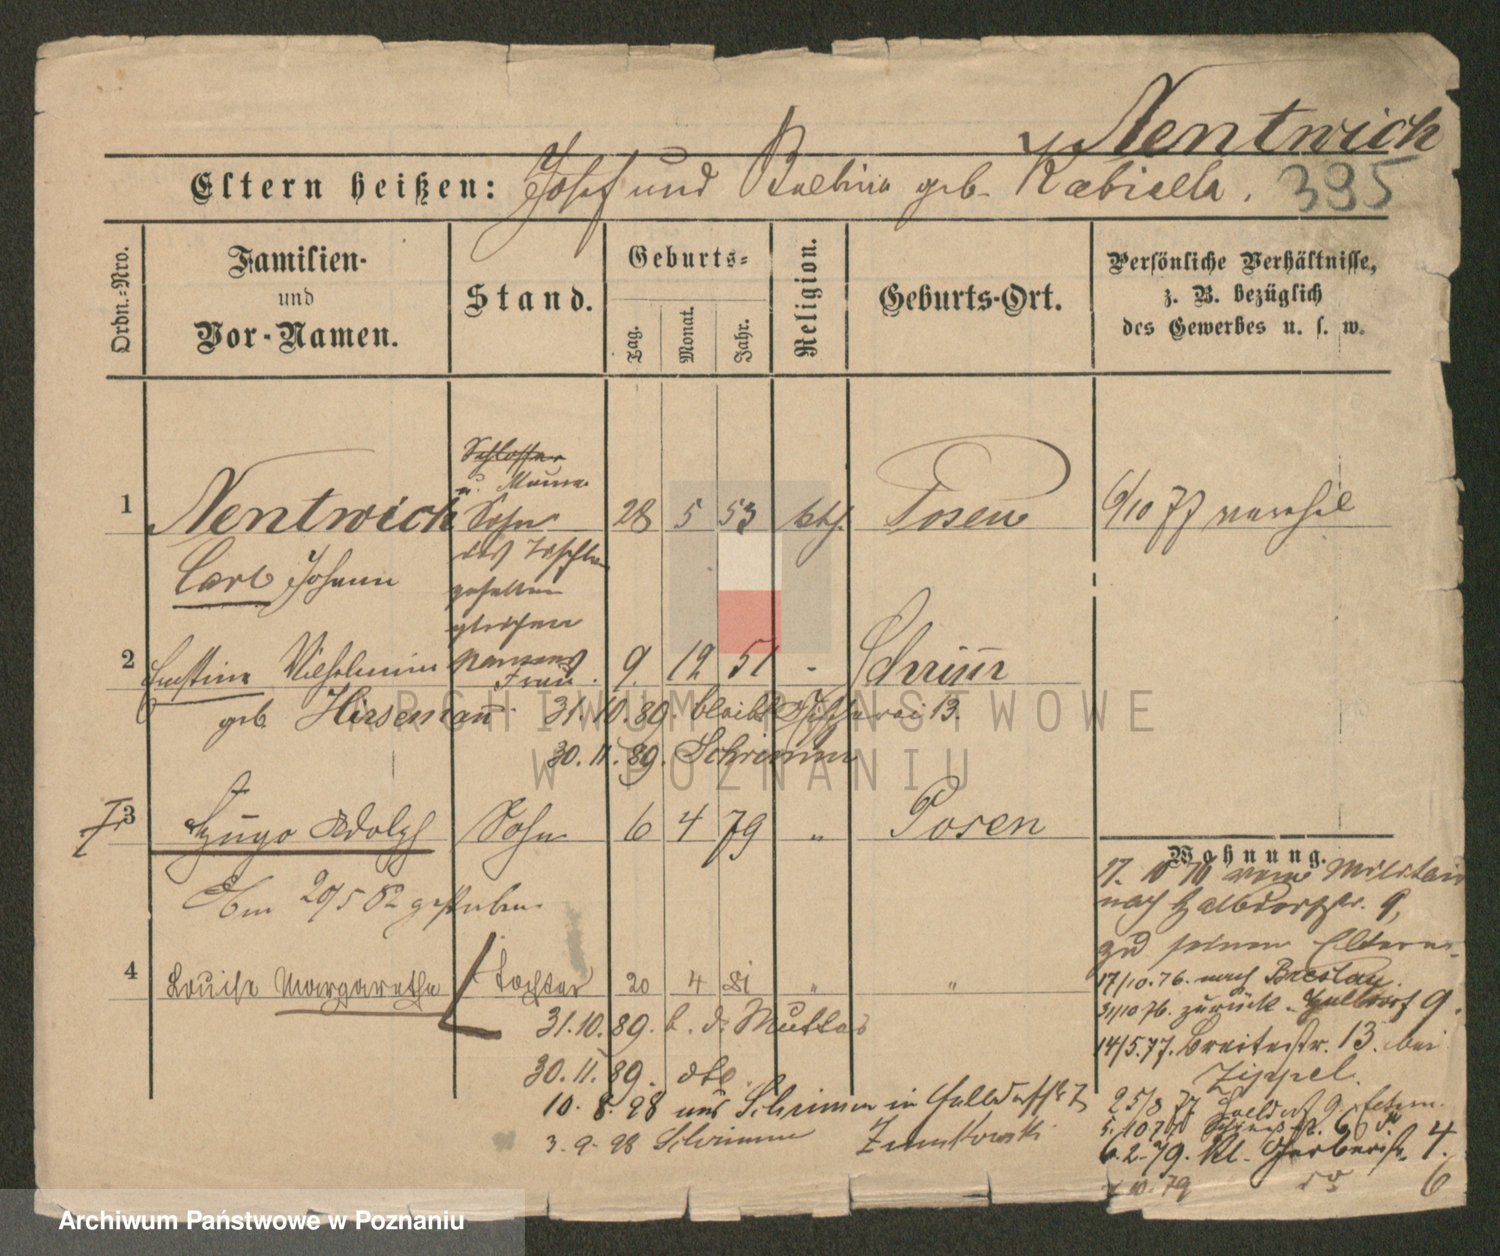 Nentwich
Eltern heißen: Josef und Balbina geb. Kabiella. 395
Ordn.-Nro.
Familien-
und
Vor-Namen.
Stand.
Geburts-
Tag.
Monat.
Jahr.
Religion.
Geburts-Ort.
Persönliche Verhältnisse,
z. B. bezüglich
des Gewerbes u. s. w.
Schlosser
u.
1 Nentwich Sohn 28 5 53 kth. Posen 6/10 77 verehel
des
Carl Johann
gesellen
gleichen
2 Ernstine Wilhelmine Namens 9. 12 51 - Schrim
Frau.
geb. Hirseman 31.10.89. bleibt Fischerei 13.
30.11.89. Schrimm
3 Hugo Adolph Sohn 6 4 79 " Posen
Am 29/5 82 gestorben.
4 Louise Margarethe Tochter 20 4 81 " "
31.10.89. b. d. Mutter
30.11.89. dto.
10.8.98 aus Schrimm in Halbdorfstr 7
3.9.98 Schrimm
Wohnung.
17.10 76 vom Militair
nach Halbdorfstr. 9,
zu seinen Eltern.
17/10.76. nach Breslau.
31/10 76. zurück. Halbdorf 9.
14/5.77. Breitestr. 13. bei
Zippel.
25/8 77 Halbdorf 9.
6.2.79. Kl. Gerberstr. 4.
79 do 6
ARCHIWUM PAŃSTWOWE
W POZNANIU
Archiwum Państwowe w Poznaniu